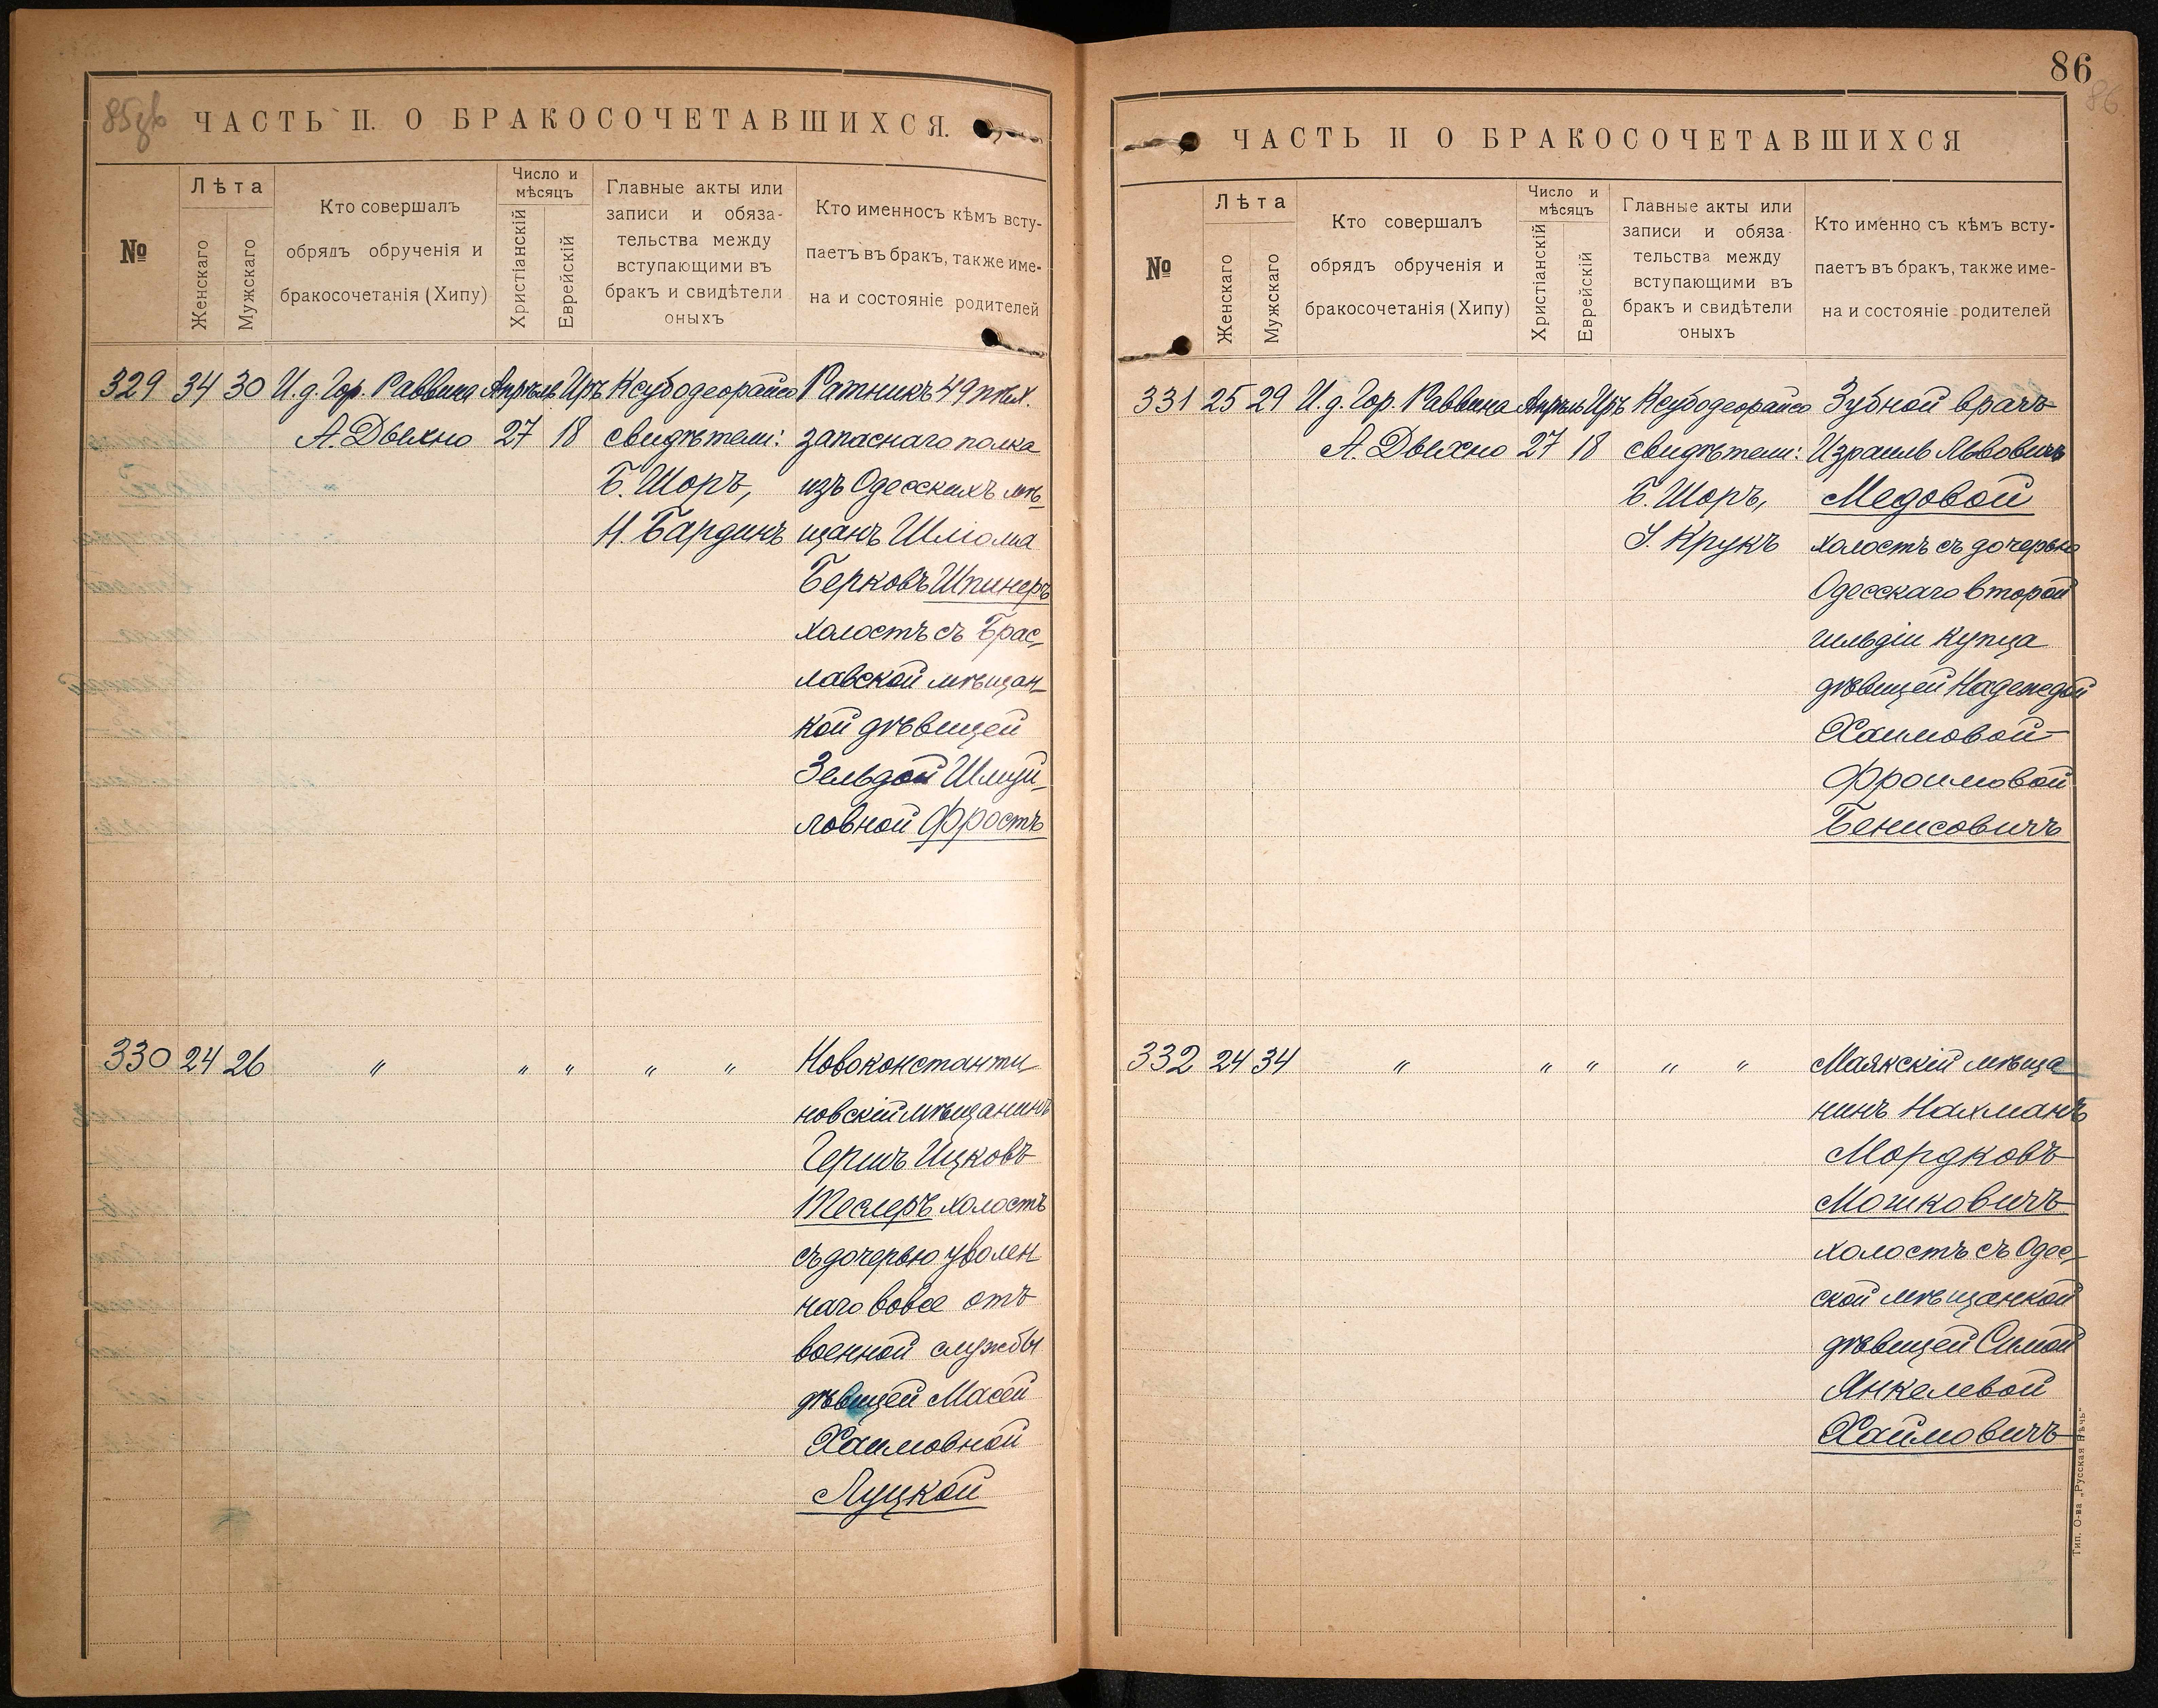 85об
ЧАСТЬ II. О БРАКОСОЧЕТАВШИХСЯ.
№
Лѣта
Женскаго
Мужскаго
Кто совершалъ
обрядъ обрученія и
бракосочетанія (Хипу)
Число и
мѣсяцъ
Христіанскій
Еврейскій
Главные акты или
записи и обяза-
тельства между
вступающими въ
бракъ и свидѣтели
оныхъ
Кто именносъ кѣмъ всту-
паетъ въ бракъ, также име-
на и состояніе родителей
329 34 30 И.д. Гор. Раввина Апрѣль Иръ Ксубодеорайсо Ратникъ 49 пѣх.
А. Дыхно 27 18 свидѣтели: запаснаго полка
Б. Шоръ, изъ Одесскихъ мѣ-
Н. Бардинъ щанъ Шліома
Берковъ Шпинеръ
холостъ съ Брас-
лавской мѣщан-
кой дѣвицей
Зельдой Шмуй-
ловной Фростъ
330 24 26 " " " " " Новоконстанти-
новскій мѣщанинъ
Гершъ Ицковъ
Теслеръ холостъ
съ дочерью уволен
наго вовсе отъ
военной службы
дѣвицей Масей
Хаимовной
Луцкой
86
86
ЧАСТЬ II О БРАКОСОЧЕТАВШИХСЯ
№
Лѣта
Женскаго
Мужскаго
Кто совершалъ
обрядъ обрученія и
бракосочетанія (Хипу)
Число и
мѣсяцъ
Христіанскій
Еврейскій
Главные акты или
записи и обяза-
тельства между
вступающими въ
бракъ и свидѣтели
оныхъ
Кто именно съ кѣмъ всту-
паетъ въ бракъ, также име-
на и состояніе родителей
331 25 29 И.д. Гор. Раввина Апрѣль Иръ Ксубодеорайсо Зубной врачъ
А. Дыхно 27 18 свидѣтели: Израиль Львовичъ
Б. Шоръ, Медовой
І. Крукъ холостъ съ дочерью
Одесскаго второй
гильдіи купца
дѣвицей Надеждой
Хаимовой-
Фроимовой
Бенисовичъ
332 24 34 " " " " " Маякскій мѣща-
нинъ Нахманъ
Мордковъ
Мошковичъ
холостъ съ Одес-
ской мѣщанкой
дѣвицей Симой
Янкелевой
Хаймовичъ
Тип. О-ва „Русская Рѣчь“